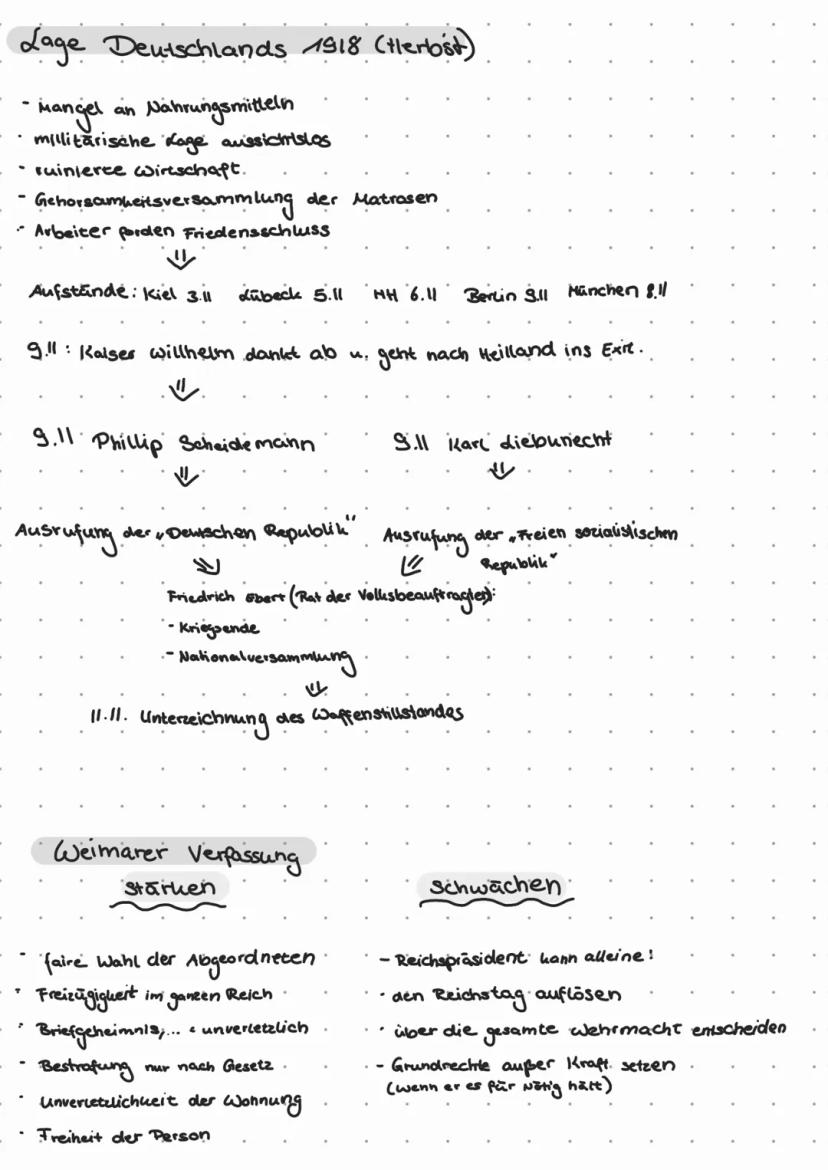 Lage Deutschlands 1918 (Herbst)
- Mangel an Nahrungsmitteln
- militärische Lage aussichtslos
- ruinierte Wirtschaft
- Gehorsamkeitsversammlung der Matrosen
- Arbeiter forden Friedensschluss
⇓
Aufstände: Kiel 3.11 Lübeck 5.11 HH 6.11 Berlin 9.11 München 8.11
9.11: Kaiser Willhelm dankt ab u. geht nach Heilland ins Exil.
⇓
9.11 Phillip Scheidemann 9.11 Karl Liebknecht
⇓ ⇓
Ausrufung der „Deutschen Republik" Ausrufung der „Freien sozialistischen
Republik"
Friedrich Ebert (Rat der Volksbeauftragter):
- Kriegsende
- Nationalversammlung
⇓
11.11. Unterzeichnung des Waffenstillstandes
Weimarer Verfassung
Stärken Schwächen
- faire Wahl der Abgeordneten - Reichspräsident kann alleine!
- Freizügigkeit im ganzen Reich - den Reichstag auflösen
- Briefgeheimnis,... unverletzlich - über die gesamte Wehrmacht entscheiden
- Bestrafung nur nach Gesetz - Grundrechte außer Kraft setzen
(wenn er es für nötig hält)
- Unverletzlichkeit der Wohnung
- Freiheit der Person